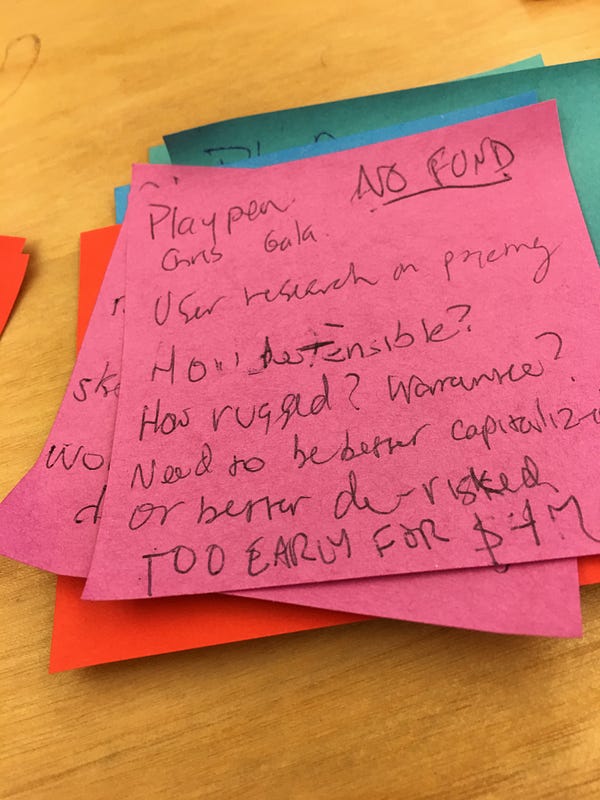 NO FUND
Playpen
Chris Gala.
User research on pricing
How defensible?
How rugged? Warrantee?
Need to be better capitaliz
or better de-risked
TOO EARLY FOR $4M
sk
wo
d